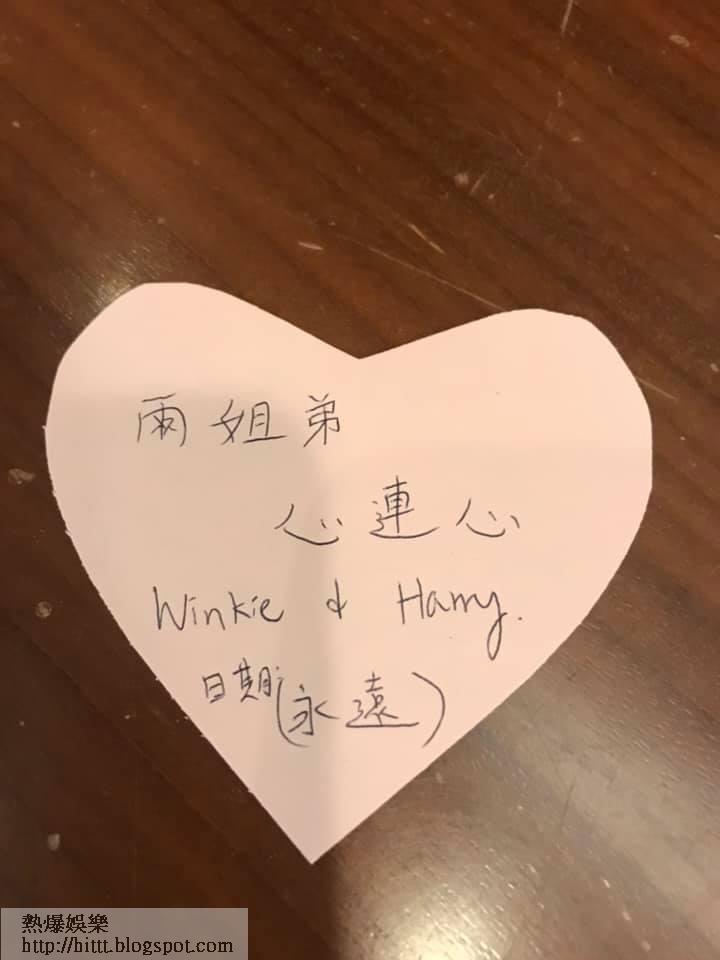 兩姐弟
心連心
Winkie & Harry.
日期:(永遠)
熱爆娛樂
http://hittt.blogspot.com